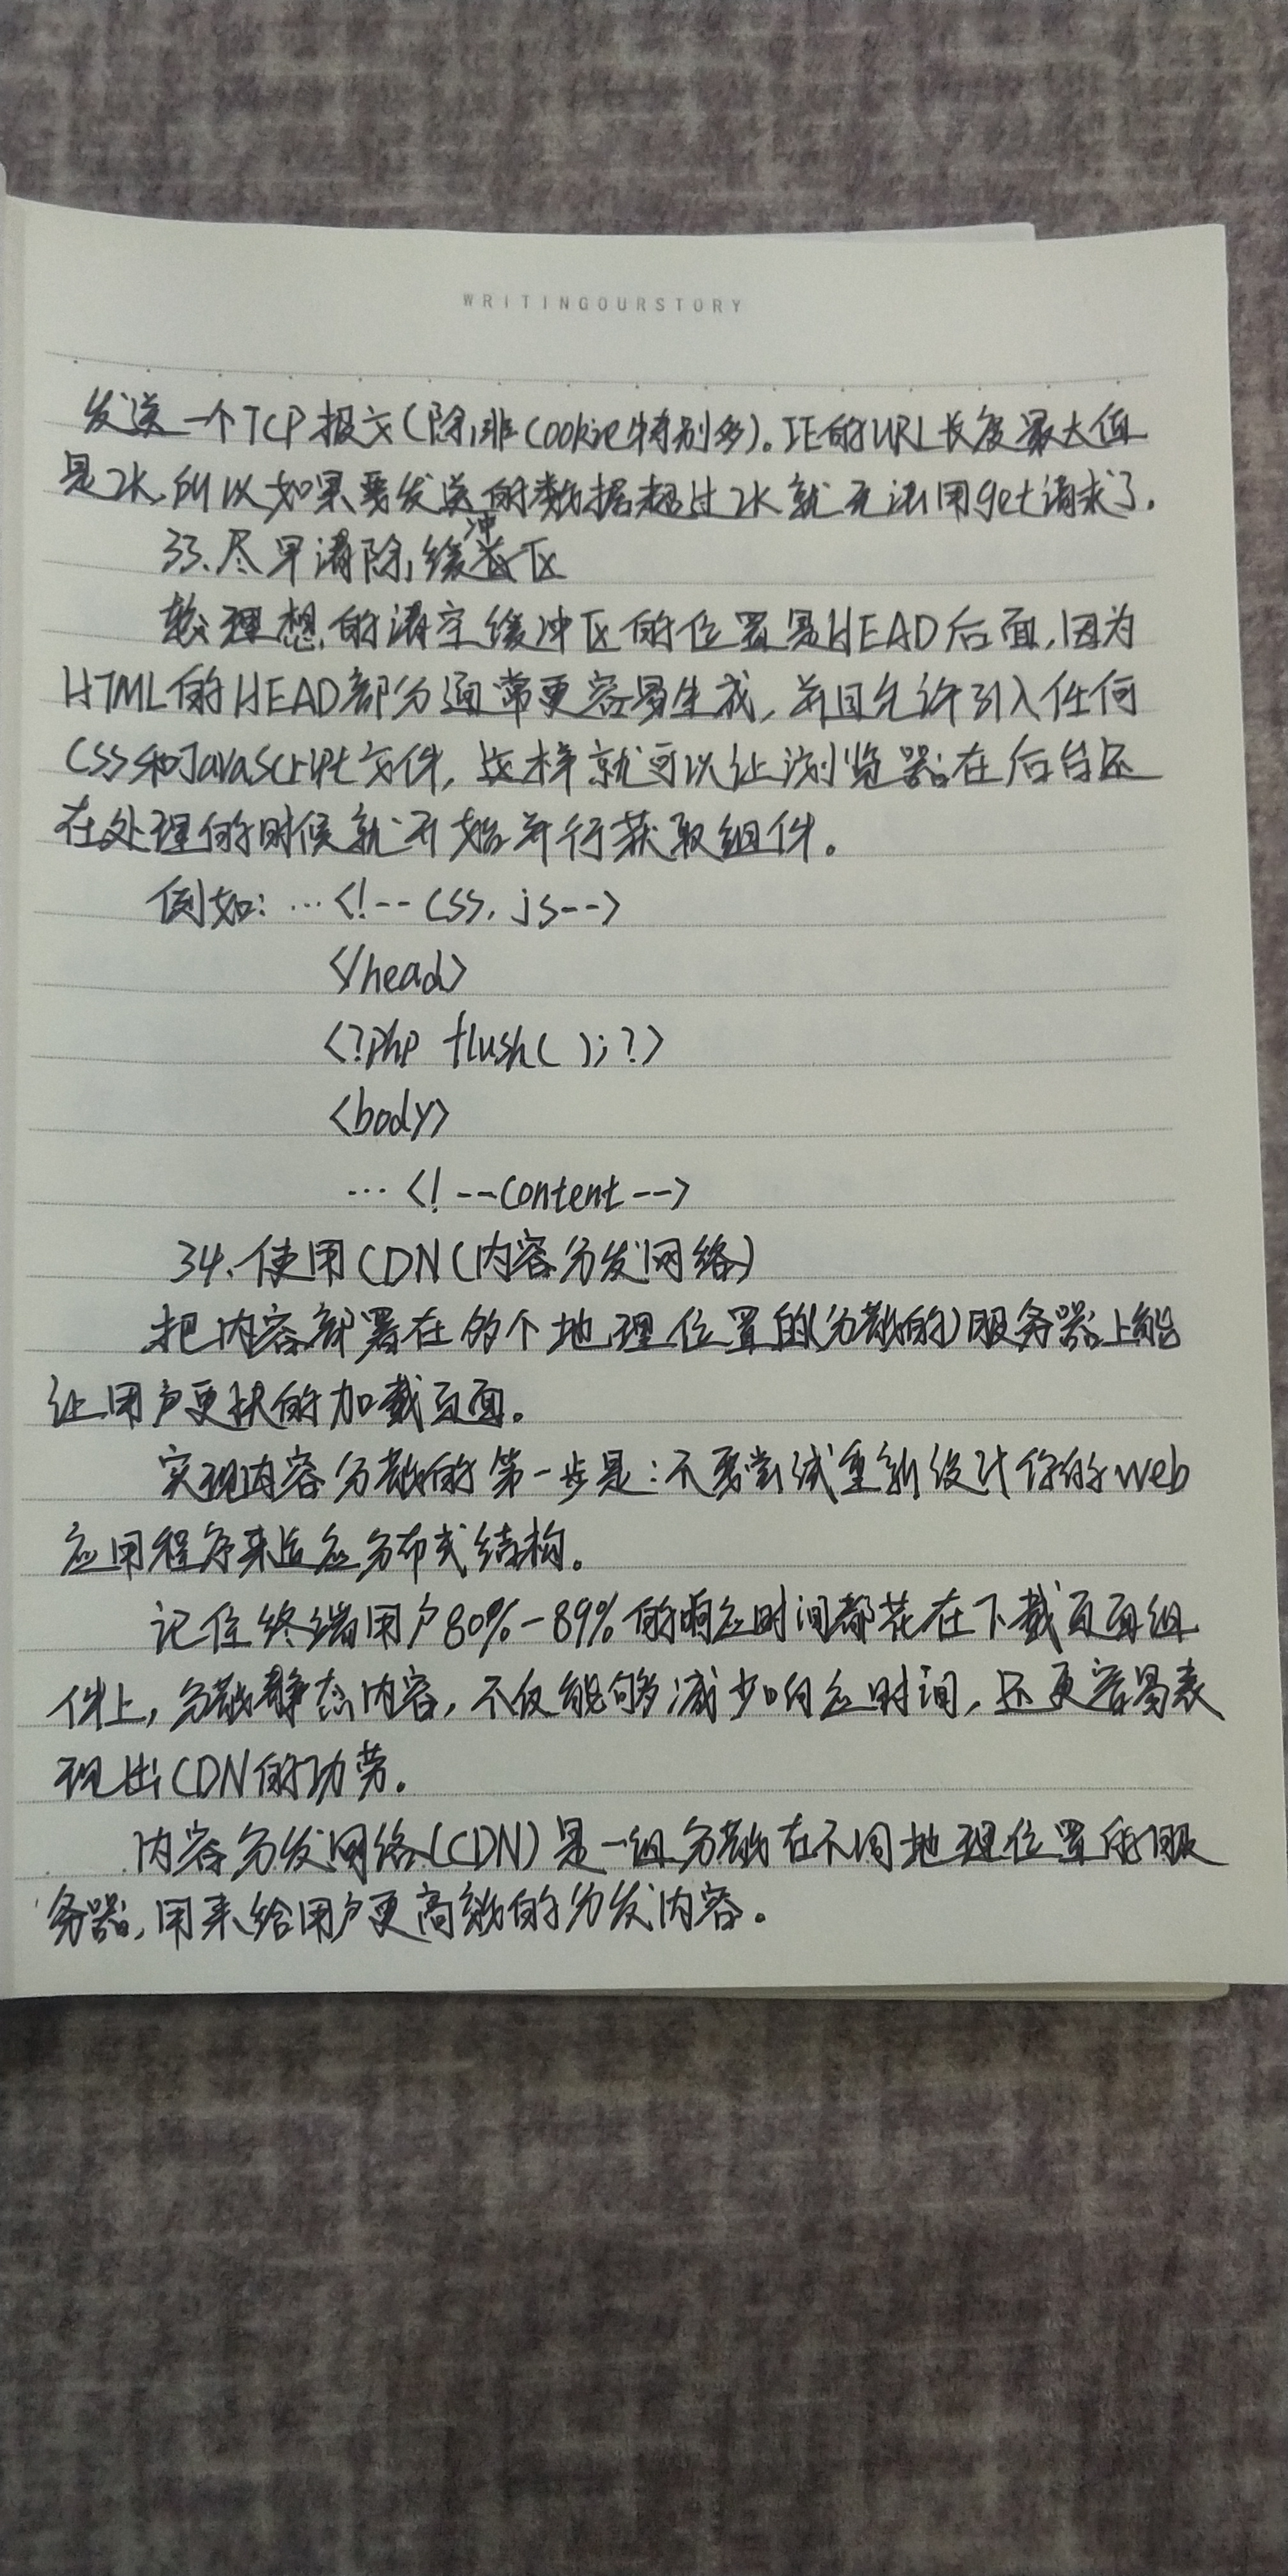 WRITINGOURSTORY
发送一个TCP报文(除非Cookie特别多)。IE的URL长度最大值
是2K,所以如果要发送的数据超过2K就无法用get请求了.
33、尽早清除缓冲区
较理想的清空缓冲区的位置是HEAD后面,因为
HTML的HEAD部分通常更容易生成,并且允许引入任何
CSS和JavaScript文件,这样就可以让浏览器在后台还
在处理的时候就开始并行获取组件。
例如:…<!--css,js-->
</head>
<?php flush();?>
<body>
…<!--content-->
34、使用CDN(内容分发网络)
把内容部署在多个地理位置的(分散的)服务器上能
让用户更快的加载页面。
实现内容分散的第一步是:不要尝试重新设计你的web
应用程序来适应分布式结构。
记住终端用户80%-89%的响应时间都花在下载页面组
件上,分散静态内容,不仅能够减少响应时间,还更容易表
现出CDN的功劳。
内容分发网络(CDN)是一组分散在不同地理位置的服
务器,用来给用户更高效的分发内容。